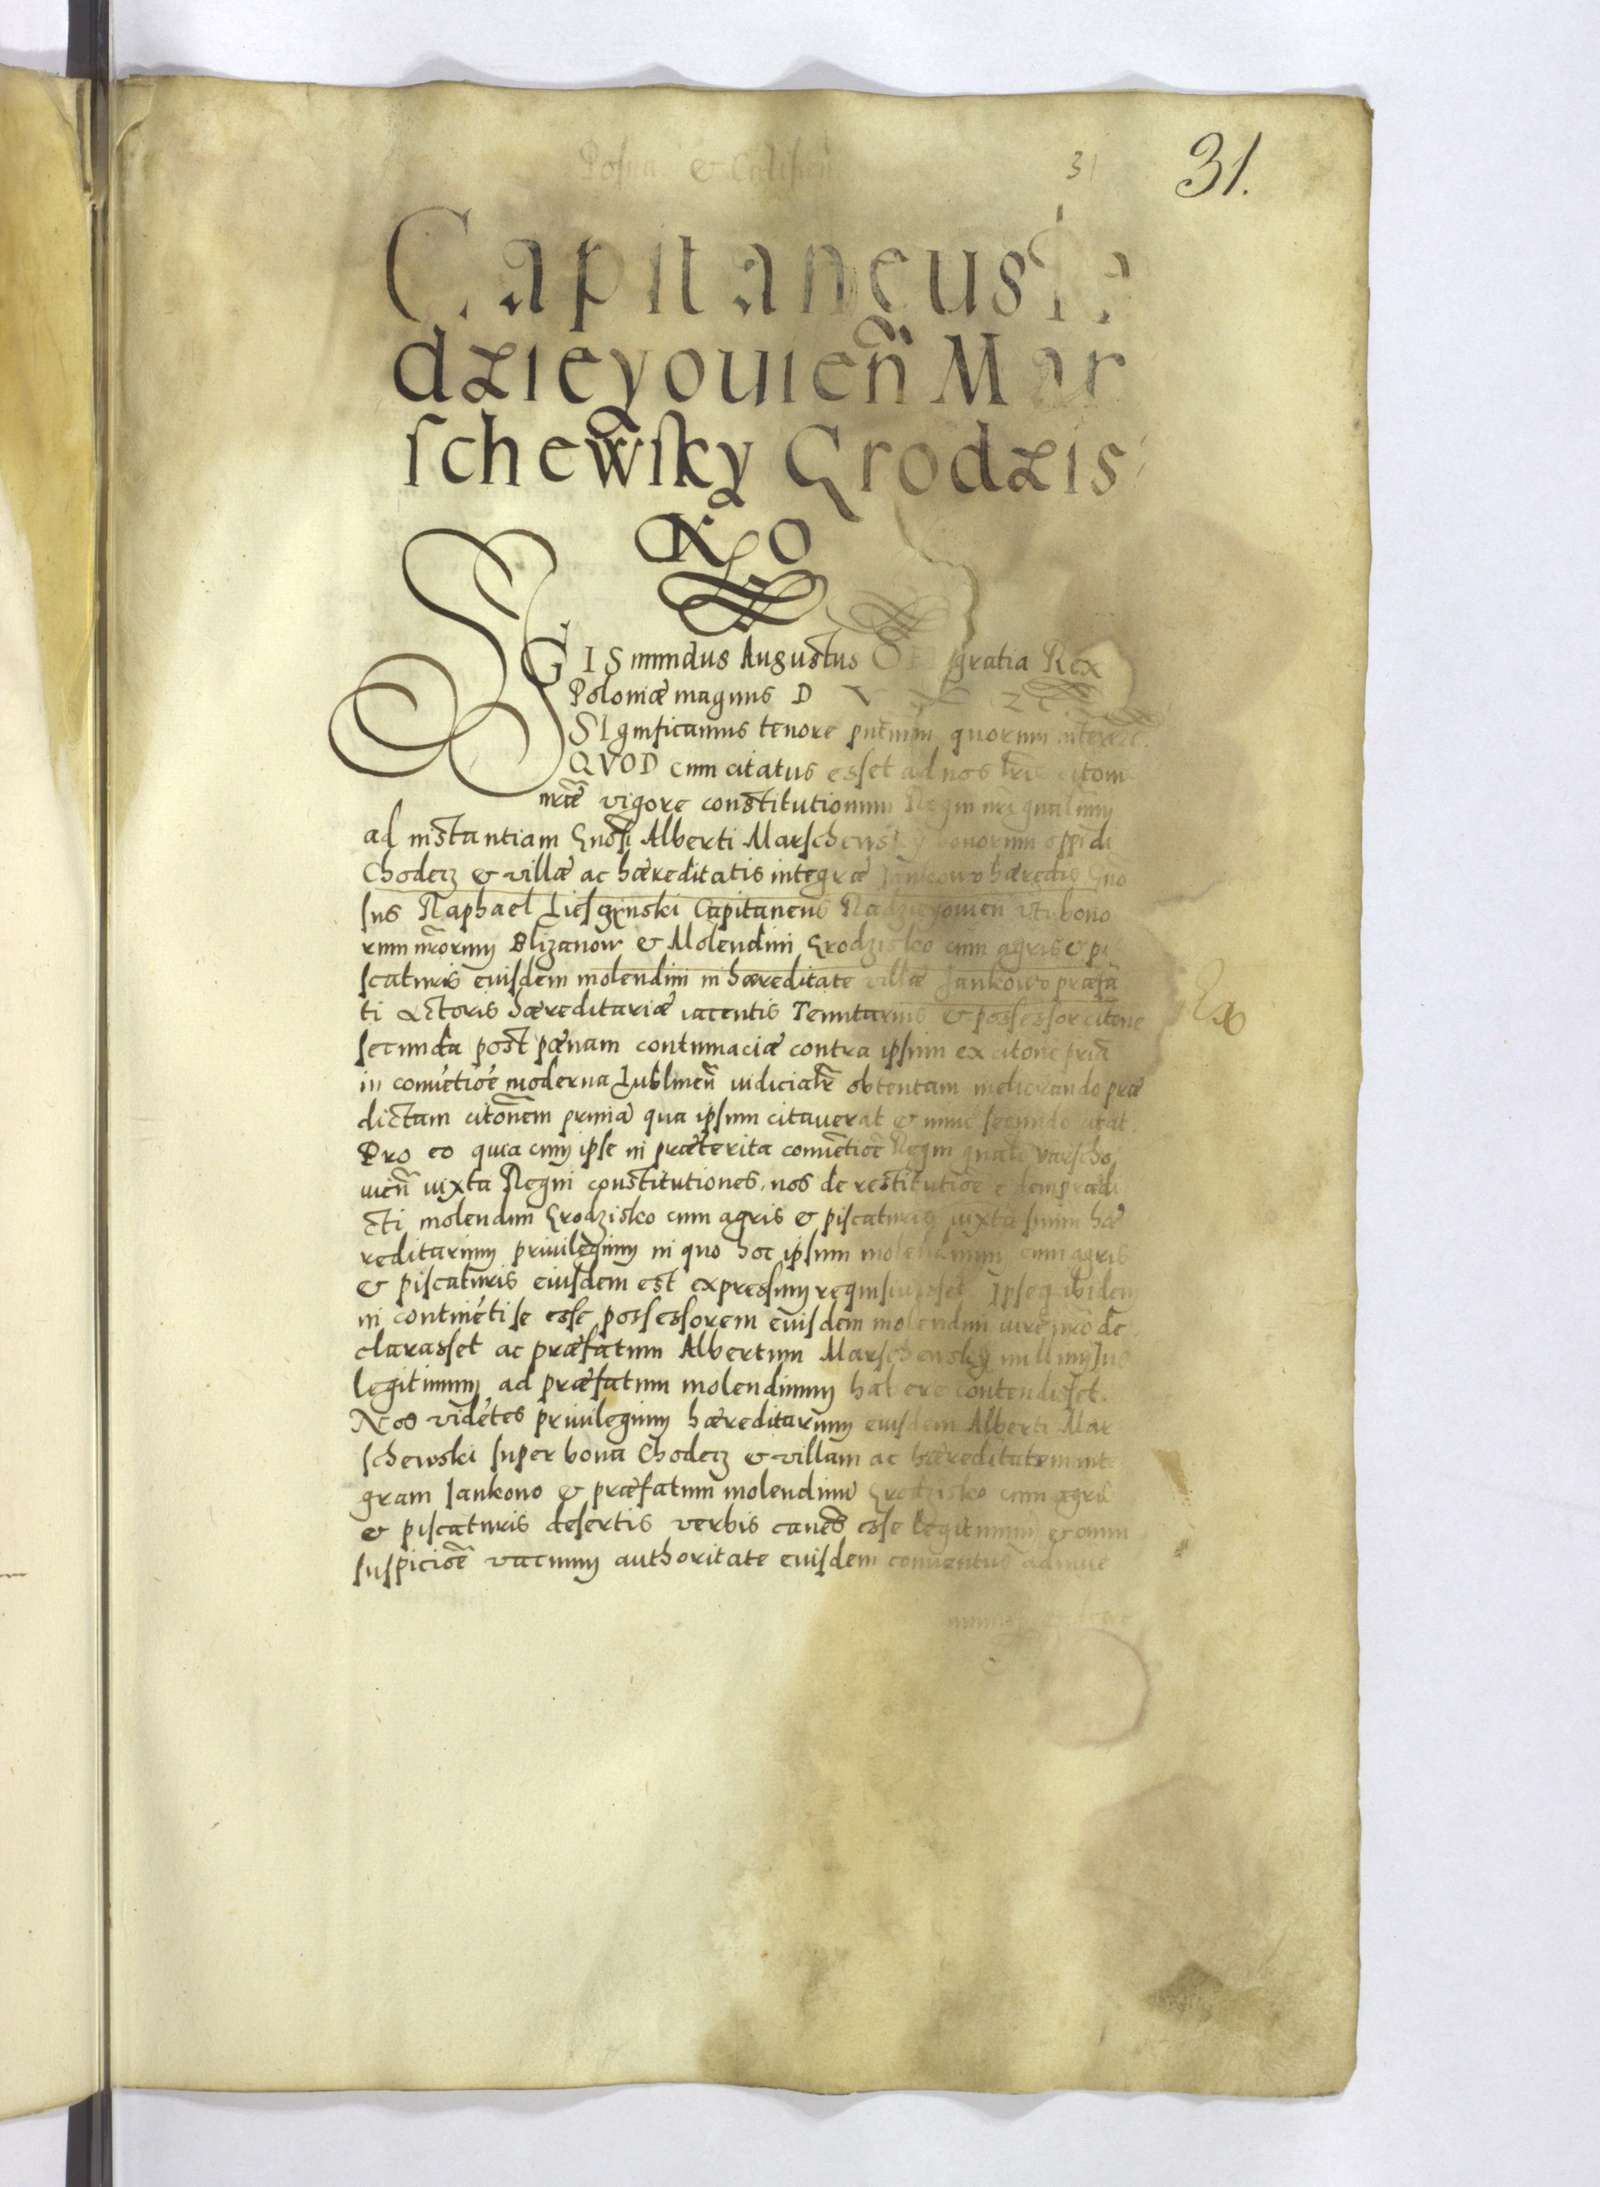 Posna & Calisien
31
31.
Capitaneus Ra
dzieyouien̄ Mar
schewsky Grodzis
ko
SIGISmundus Augustus gratia Rex
Poloniæ magnus D
SIgnificamus tenore pn̄tium quorum interest
QVOD cum citatus esset ad nos
nr̄æ vigore constitutionum Regni nr̄i qualium
ad instantiam Gn̄osi Alberti Marschewsky bonorum oppidi
Chodecz & villæ ac hæreditatis integræ Jankowo hæredis Gno
sus Raphael Liesczinski Capitaneus Radzieyouien̄ uti bono
rum nr̄orum Blizanow & Molendini Grodzisko cum agris & pi
scaturis eiusdem molendini in hæreditate villæ Jankowo præfa
ti Actoris hæreditariæ iacentis Tenutarius & possessor citōne
secunda post pœnam contumaciæ contra ipsum ex citone pria
in conuētiōe moderna Lublinen̄ iudicialr̄ obtentam meliorando præ
dictam citōnem prima qua ipsum citauerat & nunc secundo citat.
Pro eo quia cum ipse in præterita conuētiōe Regni gnāli Varscho
uien̄ iuxta Regni constitutiones, nos de restitutiōe eidem prædi
cti molendini Grodzisko cum agris & piscaturis iuxta suum hæ
reditarium priuilegium in quo hoc ipsum molendinum cum agris
& piscaturis eiusdem est expressum requisiuisset. Ipseq ibidem
in continēti se esse possessorem eiusdem molendini iure nr̄o de
clarasset ac præfatum Albertum Marschewsky nullum Jus
legitimum ad præfatum molendinum habere contendisset.
Nos vidētes priuilegium hæreditarium eiusdem Alberti Mar
schewski super bona Chodecz & villam ac hæreditatem inte
gram Jankono & præfatum molendinū Grodzisko cum agris
& piscaturis desertis verbis canēs esse legitimum & omni
suspiciōe vacuum authoritate eiusdem conuentus adinue